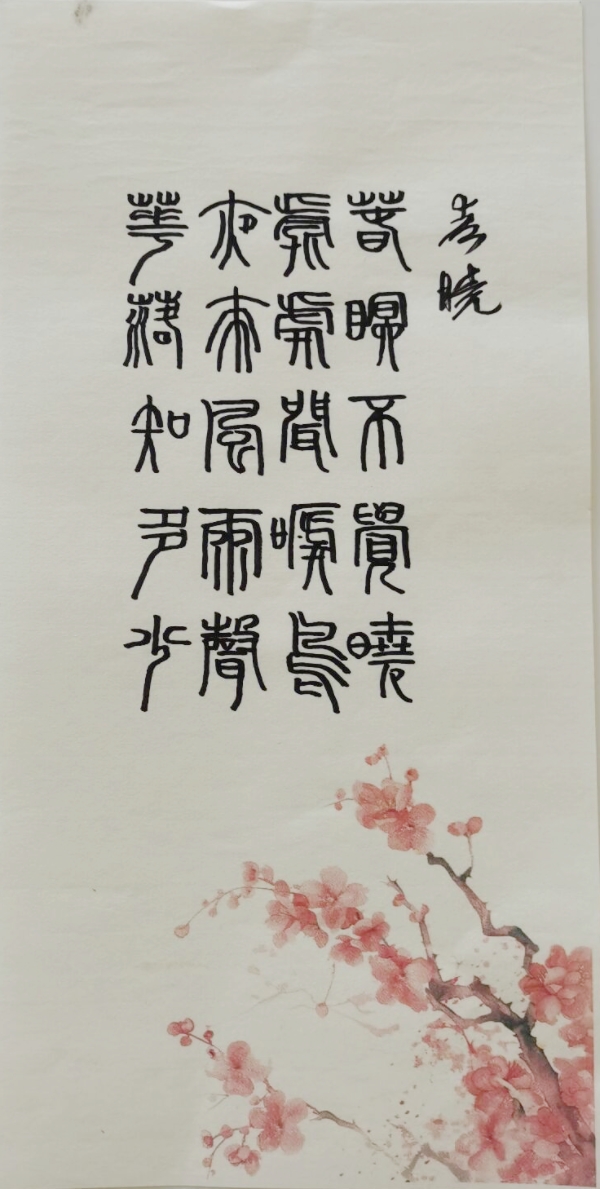 春曉
春眠不覺曉
處處聞啼鳥
夜來風雨聲
華落知多少